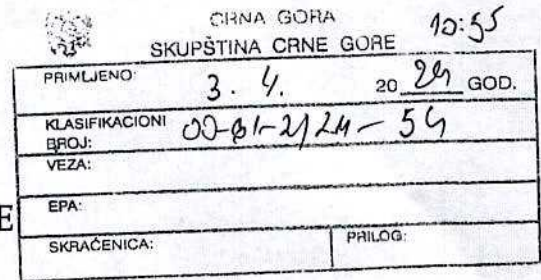 CRNA GORA
10:55
SKUPŠTINA CRNE GORE
PRIMLJENO: 3. 4. 2024 GOD.
KLASIFIKACIONI
BROJ: 00-61-2/24-54
VEZA:
EPA:
SKRAĆENICA: PRILOG:
E